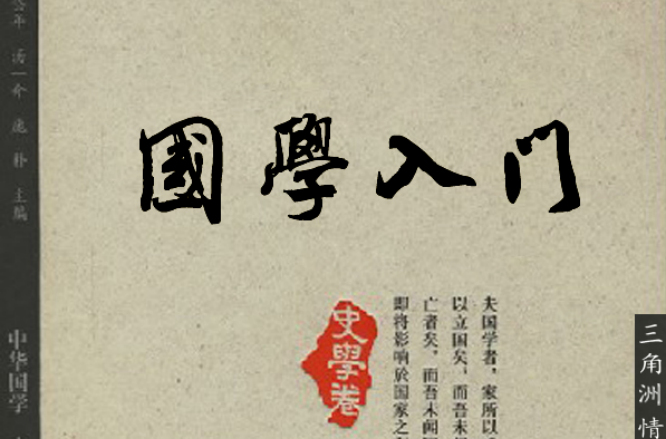 國學入门
史學卷
夫国学者，家所以
以立国矣，而吾未
亡者矣，而吾未闻
即将影响於国家之
汤一介 庞朴 主编
中华国学
三角洲情